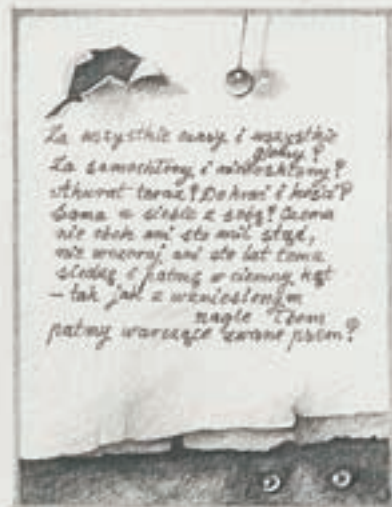 Za wszystkie czasy i wszystkie
glony?
Za jamochłony i nieboskłony?
Akurat teraz? Do krwi i kości?
Sama u siebie z sobą? Czemu
nie obok ani sto mil stąd,
nie wczoraj ani sto lat temu
siedzę i patrzę w ciemny kąt
– tak jak z wzniesionym
nagle łbem
patrzy warczące zwane psem?